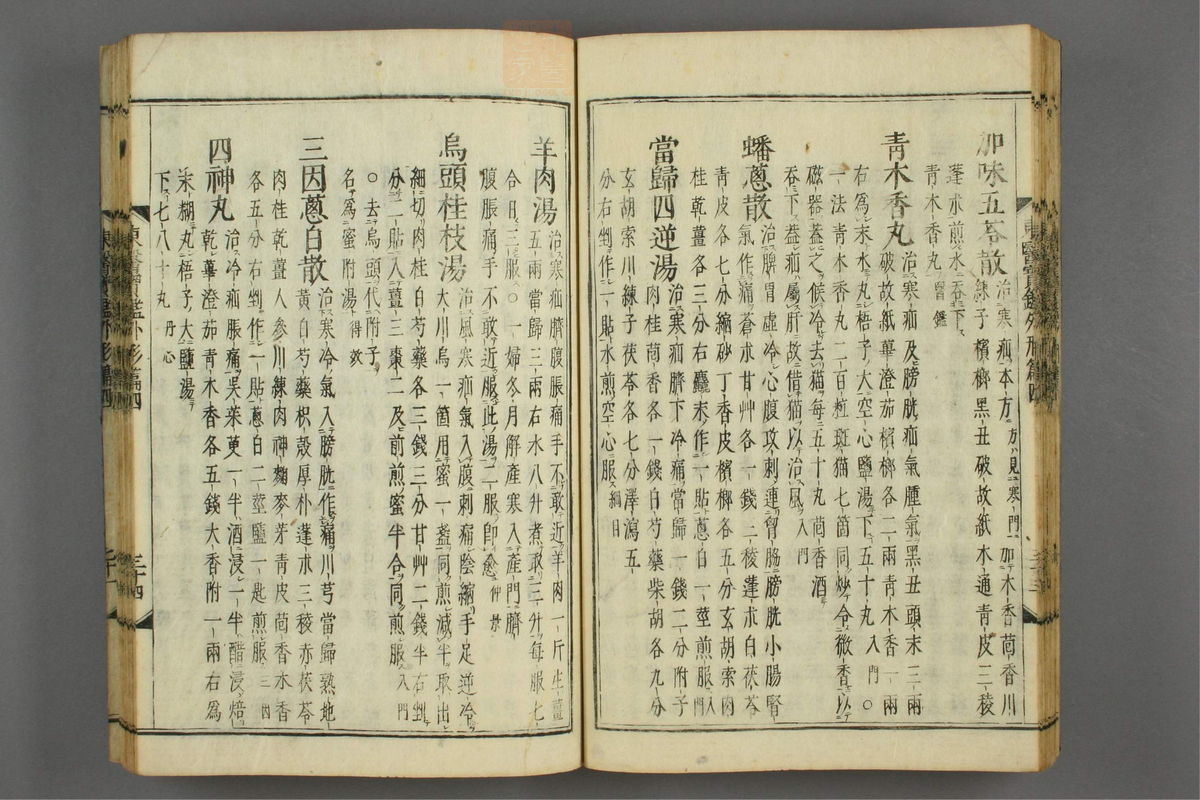 加味五苓散治寒疝本方方見寒門加木香茴香川
練子檳榔黑丑破故紙木通青皮三稜
蓬朮煎水吞下
青木香丸醫鑑
青木香丸治寒疝及膀胱疝氣腫氣黑丑頭末三兩
破故紙蓽澄茄檳榔各二兩青木香一兩
右爲末水丸梧子大空心鹽湯下五十丸入門○
一法青木香丸二百粒斑猫七箇同炒令微香以
磁器盖之候冷去猫每五十丸茴香酒
吞下盖疝屬肝故借猫以治風入門
蟠葱散治脾胃虛冷心腹攻刺連胷脇膀胱小腸腎
氣作痛蒼朮甘艸各一錢三稜蓬朮白茯苓
青皮各七分縮砂丁香皮檳榔各五分玄胡索肉
桂乾薑各三分右麤末作一貼葱白一莖煎服入門
當歸四逆湯治寒疝臍下冷痛當歸一錢二分附子
肉桂茴香各一錢白芍藥柴胡各九分
玄胡索川練子茯苓各七分澤瀉五
分右剉作一貼水煎空心服綱目
羊肉湯治寒疝臍腹脹痛手不敢近羊肉一斤生薑
五兩當歸三兩右水八升煮取三升每服七
合日三服○一婦冬月解產寒入產門臍
腹脹痛手不敢近服此湯二服卽愈仲景
烏頭桂枝湯治風寒疝氣入腹刺痛陰縮手足逆冷
大川烏一箇用蜜一盞同煎減半取出
細切肉桂白芍藥各三錢三分甘艸二錢半右剉
分二貼入薑三棗二及前煎蜜半合同煎服入門
○去烏頭代附子
名爲蜜附湯得效
三因葱白散治寒冷氣入膀胱作痛川芎當歸熟地
黃白芍藥枳殼厚朴蓬朮三稜赤茯苓
肉桂乾薑人參川練肉神麴麥芽青皮茴香木香
各五分右剉作一貼葱白二莖鹽一匙煎服三因
四神丸治冷疝脹痛吳茱萸一半酒浸一半醋浸焙
乾蓽澄茄青木香各五錢大香附一兩右爲
末糊丸梧子大鹽湯
下七八十丸丹心
東醫寶鑑外形篇四
三十四